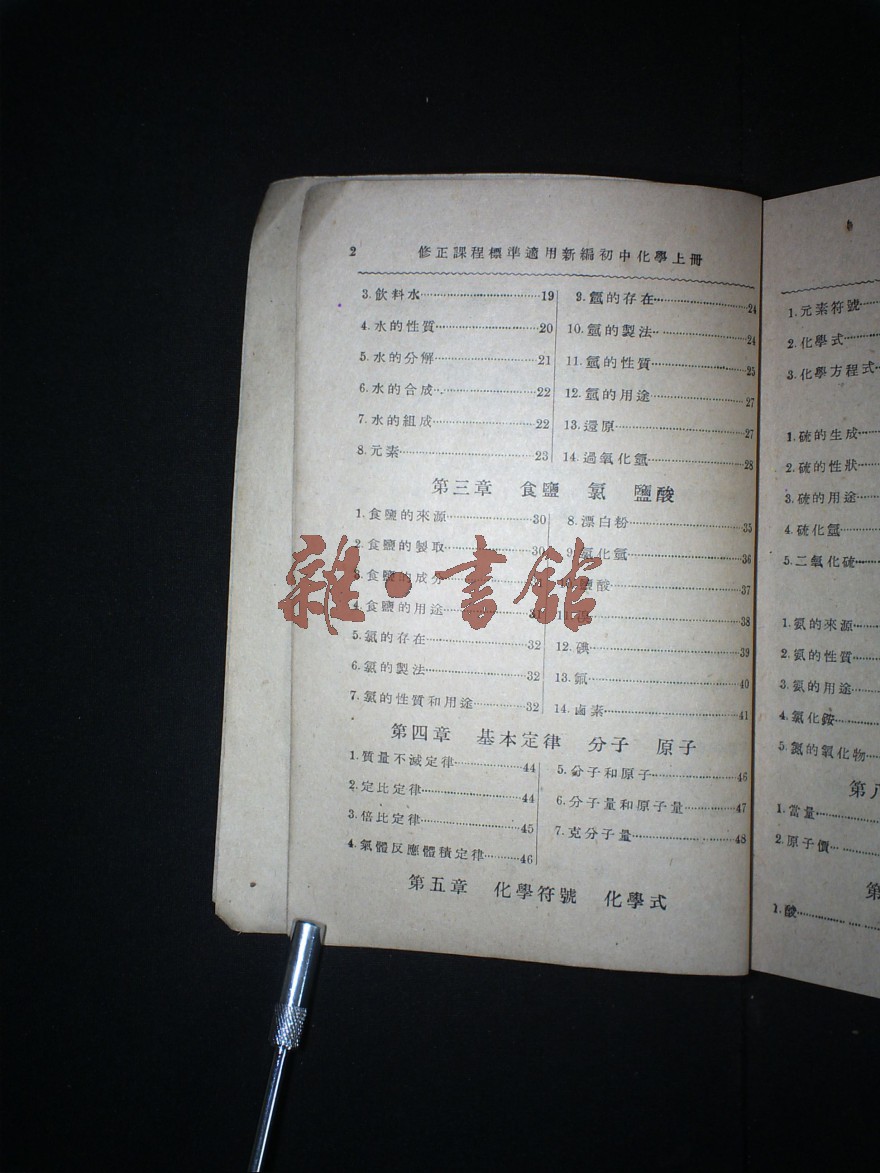 2 修正課程標準適用新編初中化學上冊
3. 飲料水……19
4. 水的性質……20
5. 水的分解……21
6. 水的合成……22
7. 水的組成……22
8. 元素……23
9. 氫的存在……24
10. 氫的製法……24
11. 氫的性質……25
12. 氫的用途……27
13. 還原……27
14. 過氧化氫……28
第三章 食鹽 氯 鹽酸
1. 食鹽的來源……30
2. 食鹽的製取……30
3. 食鹽的成分……
4. 食鹽的用途……31
5. 氯的存在……32
6. 氯的製法……32
7. 氯的性質和用途……32
8. 漂白粉……35
9. 氯化氫……36
10. 鹽酸……37
11.……38
12. 碘……39
13. 氟……40
14. 鹵素……41
第四章 基本定律 分子 原子
1. 質量不滅定律……44
2. 定比定律……44
3. 倍比定律……45
4. 氣體反應體積定律……46
5. 分子和原子……46
6. 分子量和原子量……47
7. 克分子量……48
第五章 化學符號 化學式
雜·書館
1. 元素符號……
2. 化學式……
3. 化學方程式…
1. 硫的生成……
2. 硫的性狀……
3. 硫的用途……
4. 硫化氫……
5. 二氧化硫……
1. 氨的來源……
2. 氨的性質……
3. 氨的用途……
4. 氯化銨……
5. 氮的氧化物…
第八
1. 當量……
2. 原子價……
第
1. 酸……